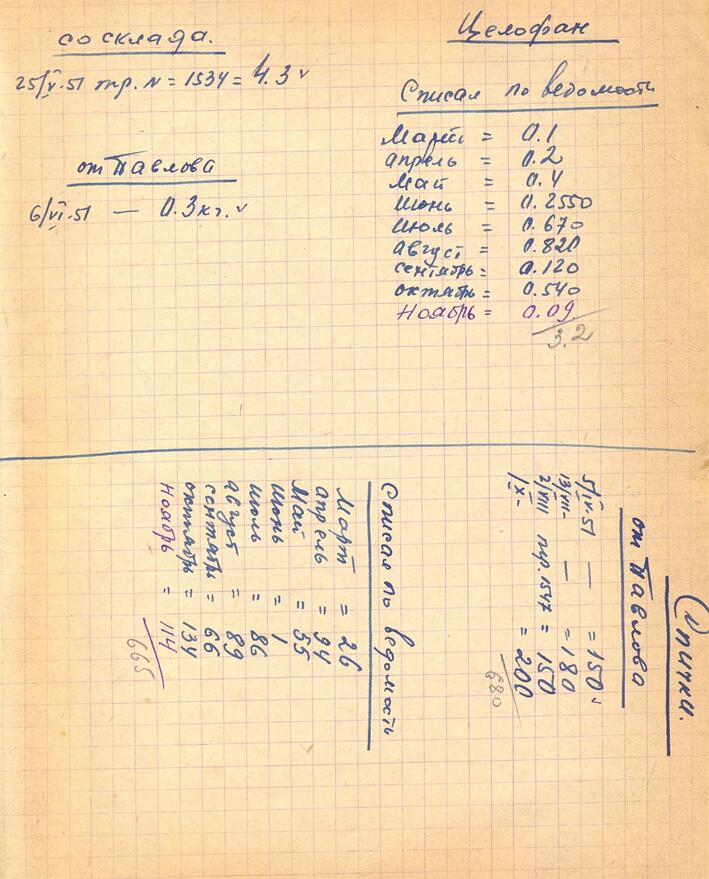 Целофан
со склада.
25/V.51 тр. N = 1534 = 4.3 v
от Павлова
6/VI.51 — 0.3 кг. v
Списал по ведомости
Март = 0.1
апрель = 0.2
Май = 0.4
Июнь = 0.2550
Июль = 0.670
август = 0.820
сентябрь = 0.120
октябрь = 0.540
Ноябрь = 0.09
3.2
Спички.
от Павлова
5/IV.51 — = 150 v
13/VII - — = 180
2/VIII тр. 1547 = 150
1/X - = 200
680
Списал по ведомость
Март = 26
апрель = 94
Май = 55
Июнь = 1
Июль = 86
август = 89
сентябрь = 66
октябрь = 134
Ноябрь = 114
665